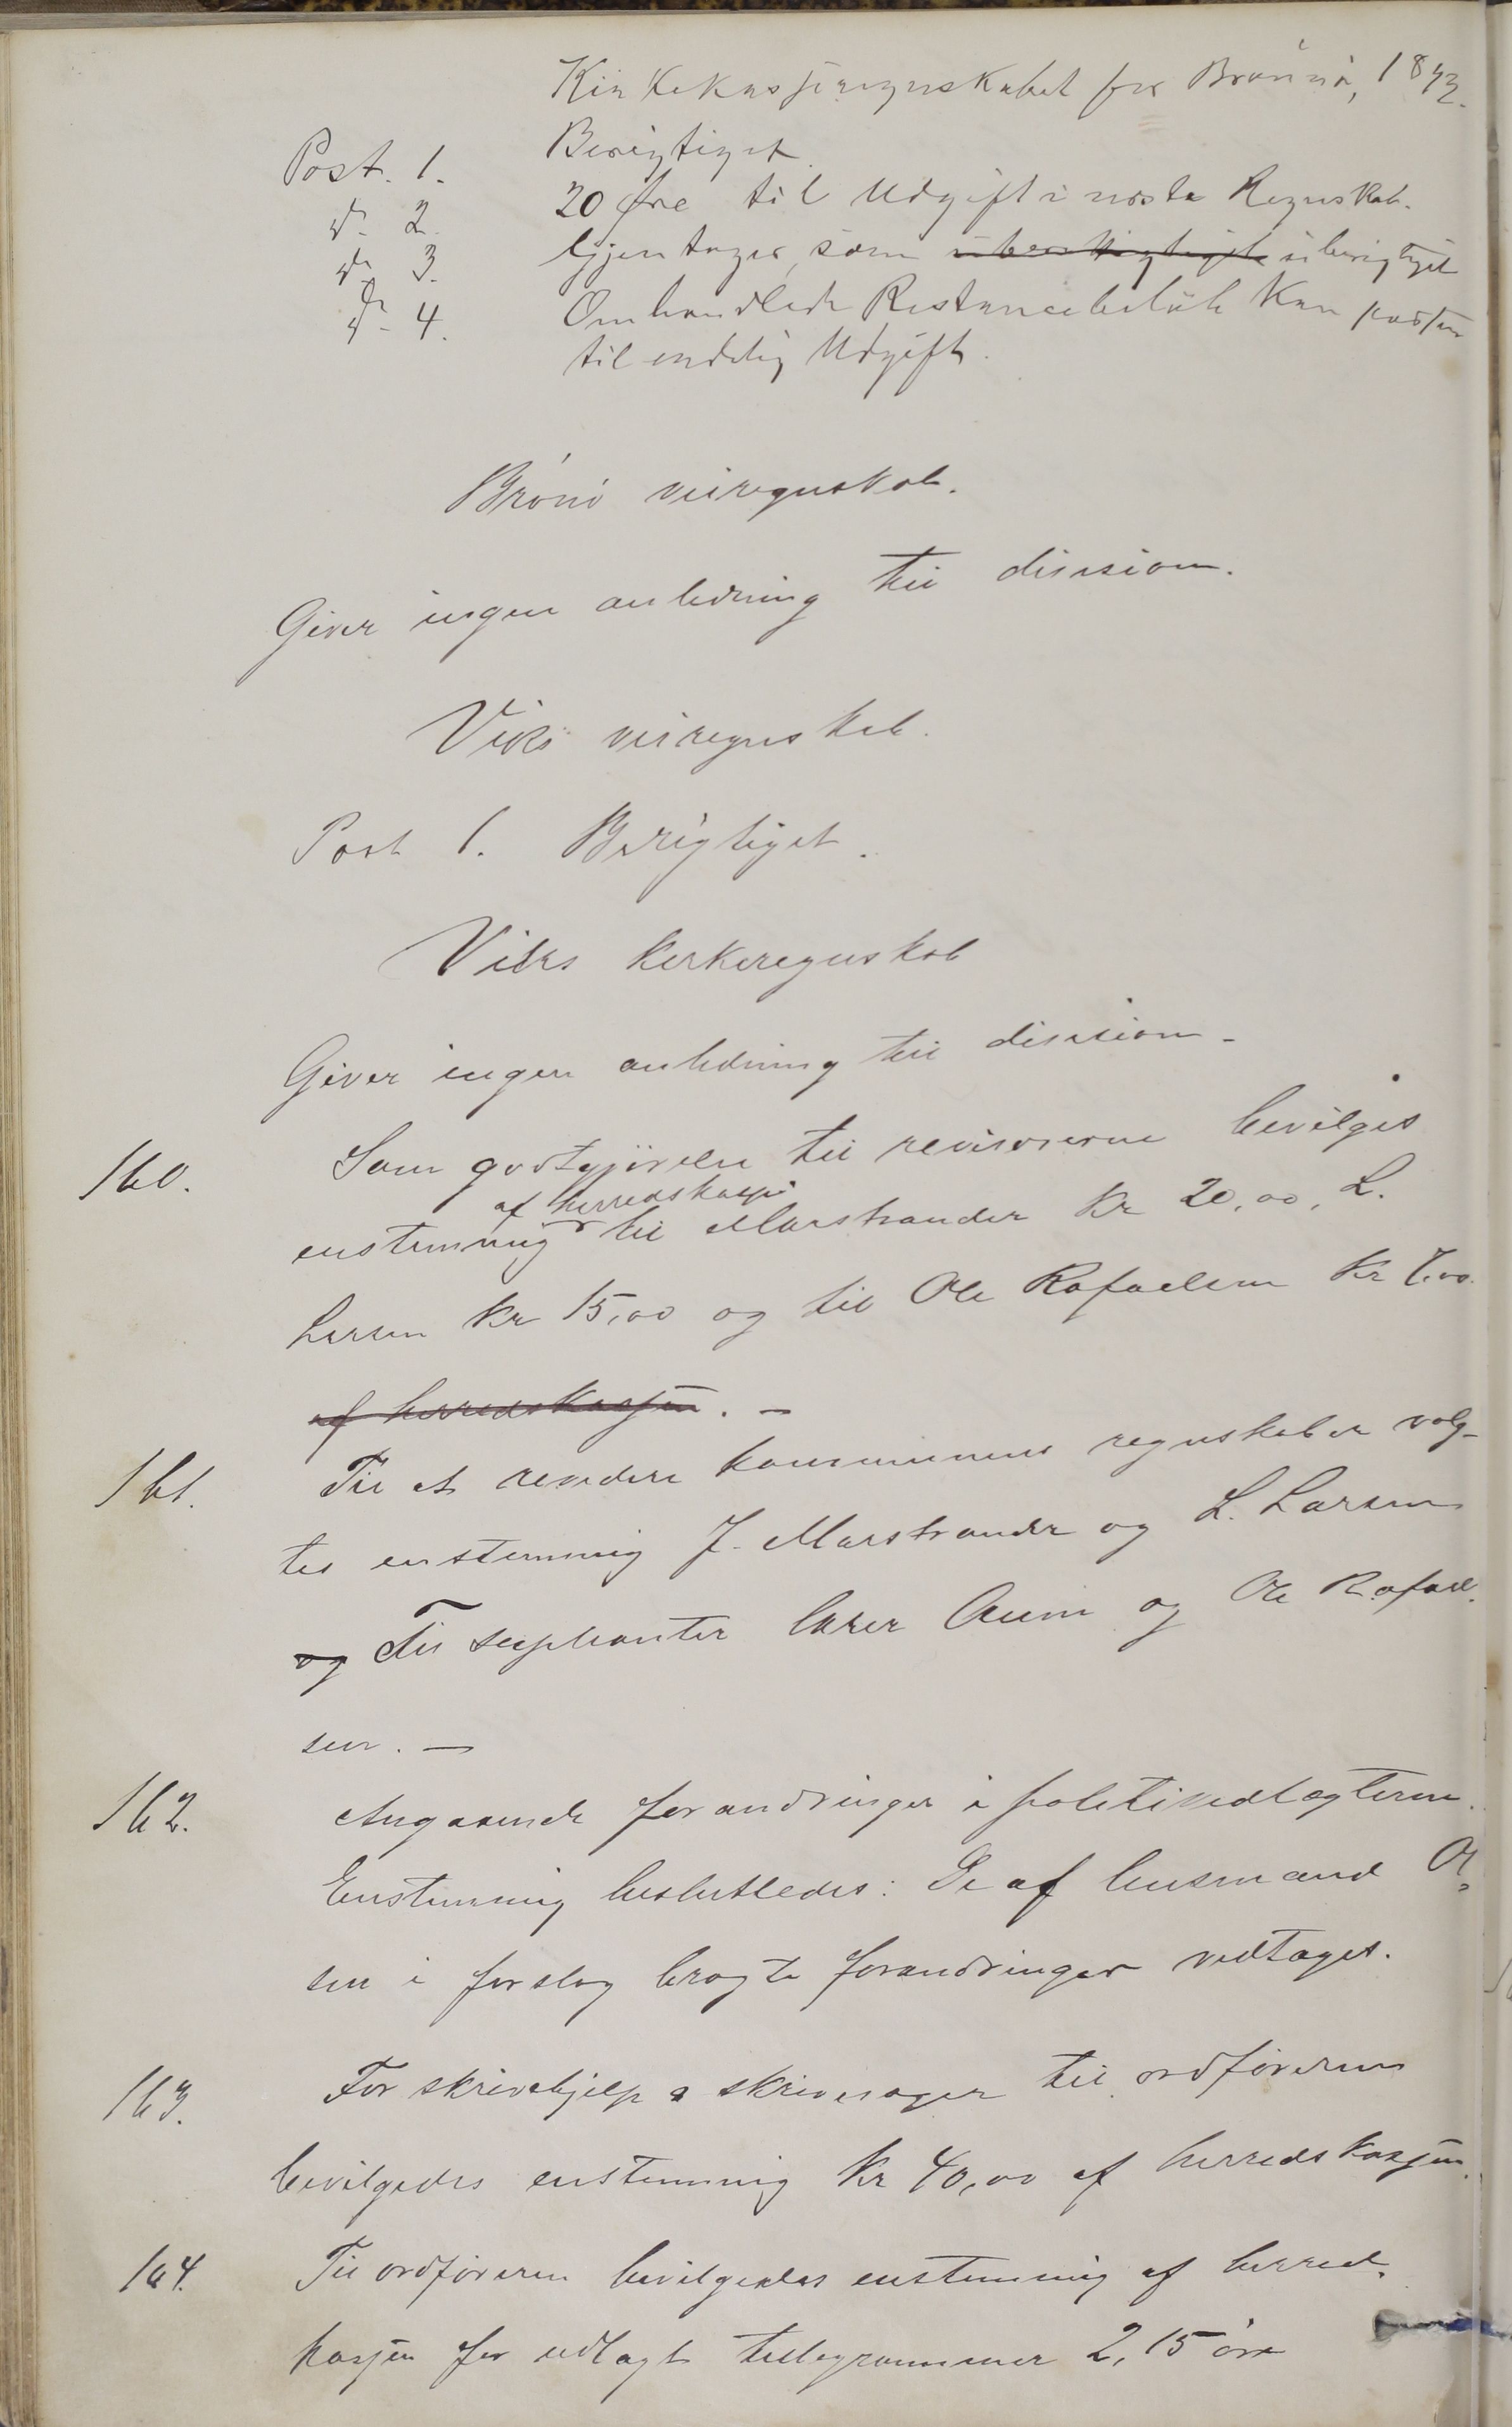 Kirkekasseregnskabet for Brønnø, 1892.
Post. 1. Berigtiget.
do 2. 20 Øre til Udgift i næste Regnskab.
do 3. Igjentages, som uberigtiget
do 4. Omhandlede Restancebeløb kan postere
til endelig Udgift.
Brønø veiregnskab.
Giver ingen anledning til desission.
Viks veiregnskab.
Post 1. Berigtiget.
Viks kirkeregnskab
Giver ingen anledning til desission -
160. Som godtgjørelse til revisorerne bevilges
af herredskassen
enstemmig til Marstrander Kr 20,00, L.
Larsen Kr 15,00 og til Ole Rafaelsen Kr 7.00.
af herredskassen. -
161. Til at revidere kommunens regnskaber valg-
tes enstemmig J. Marstrander og L. Larsen
og Til suplianter lærer Aune og Ole Rafael-
sen. -
162. Angaaende forandringer i politivedtægterne.
Enstemmig besluttedes: De af lensmand Ol-
sen i forslag bragte forandringer vedtages.
163. For skrivehjelp & skrivesager til ordføreren
bevilgedes enstemmig Kr 40,00 af herredskassen.
164. Til ordføreren bevilgedes enstemmig af herreds-
kassen for udlagt tellegrammer 2,15 øre